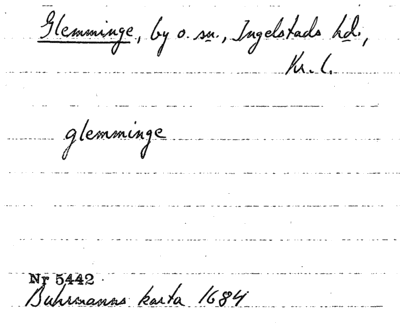 Glemminge, by o. sn., Ingelstads hd.,
Kr. l.
glemminge
Nr 5442
Buhrmanns karta 1684